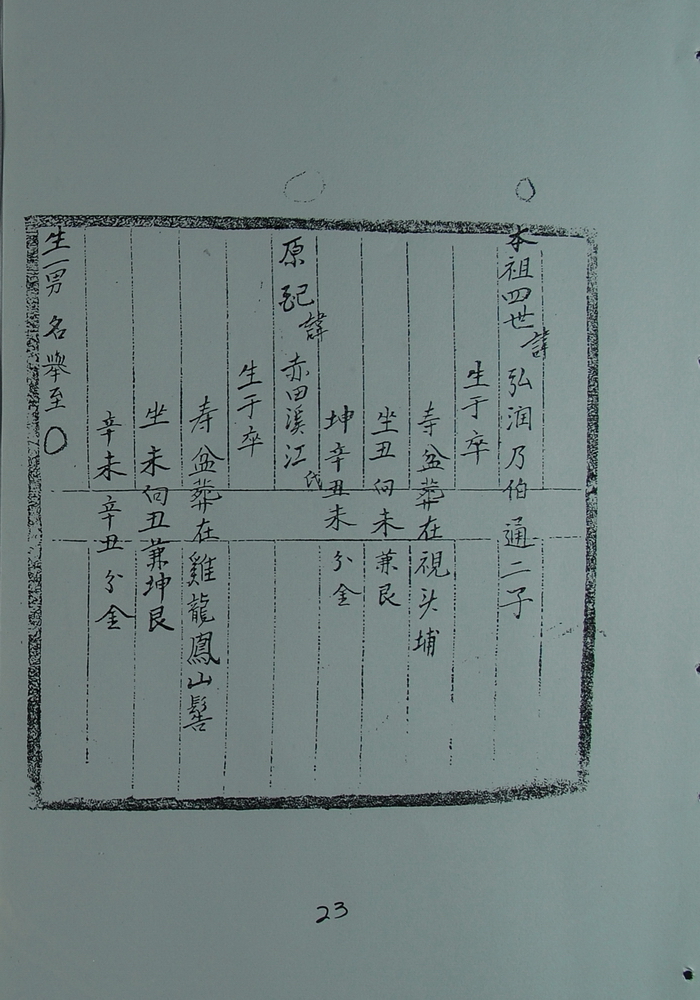 本祖四世諱弘润乃伯通二子
生于卒
寿盆葬在視头埔
坐丑向未兼艮
坤辛丑辛未分金
原配諱赤田溪江氏
生于卒
寿盆葬在雞龍鳳山髻
坐未向丑兼坤艮
辛未辛丑分金
生一男名舉至
23